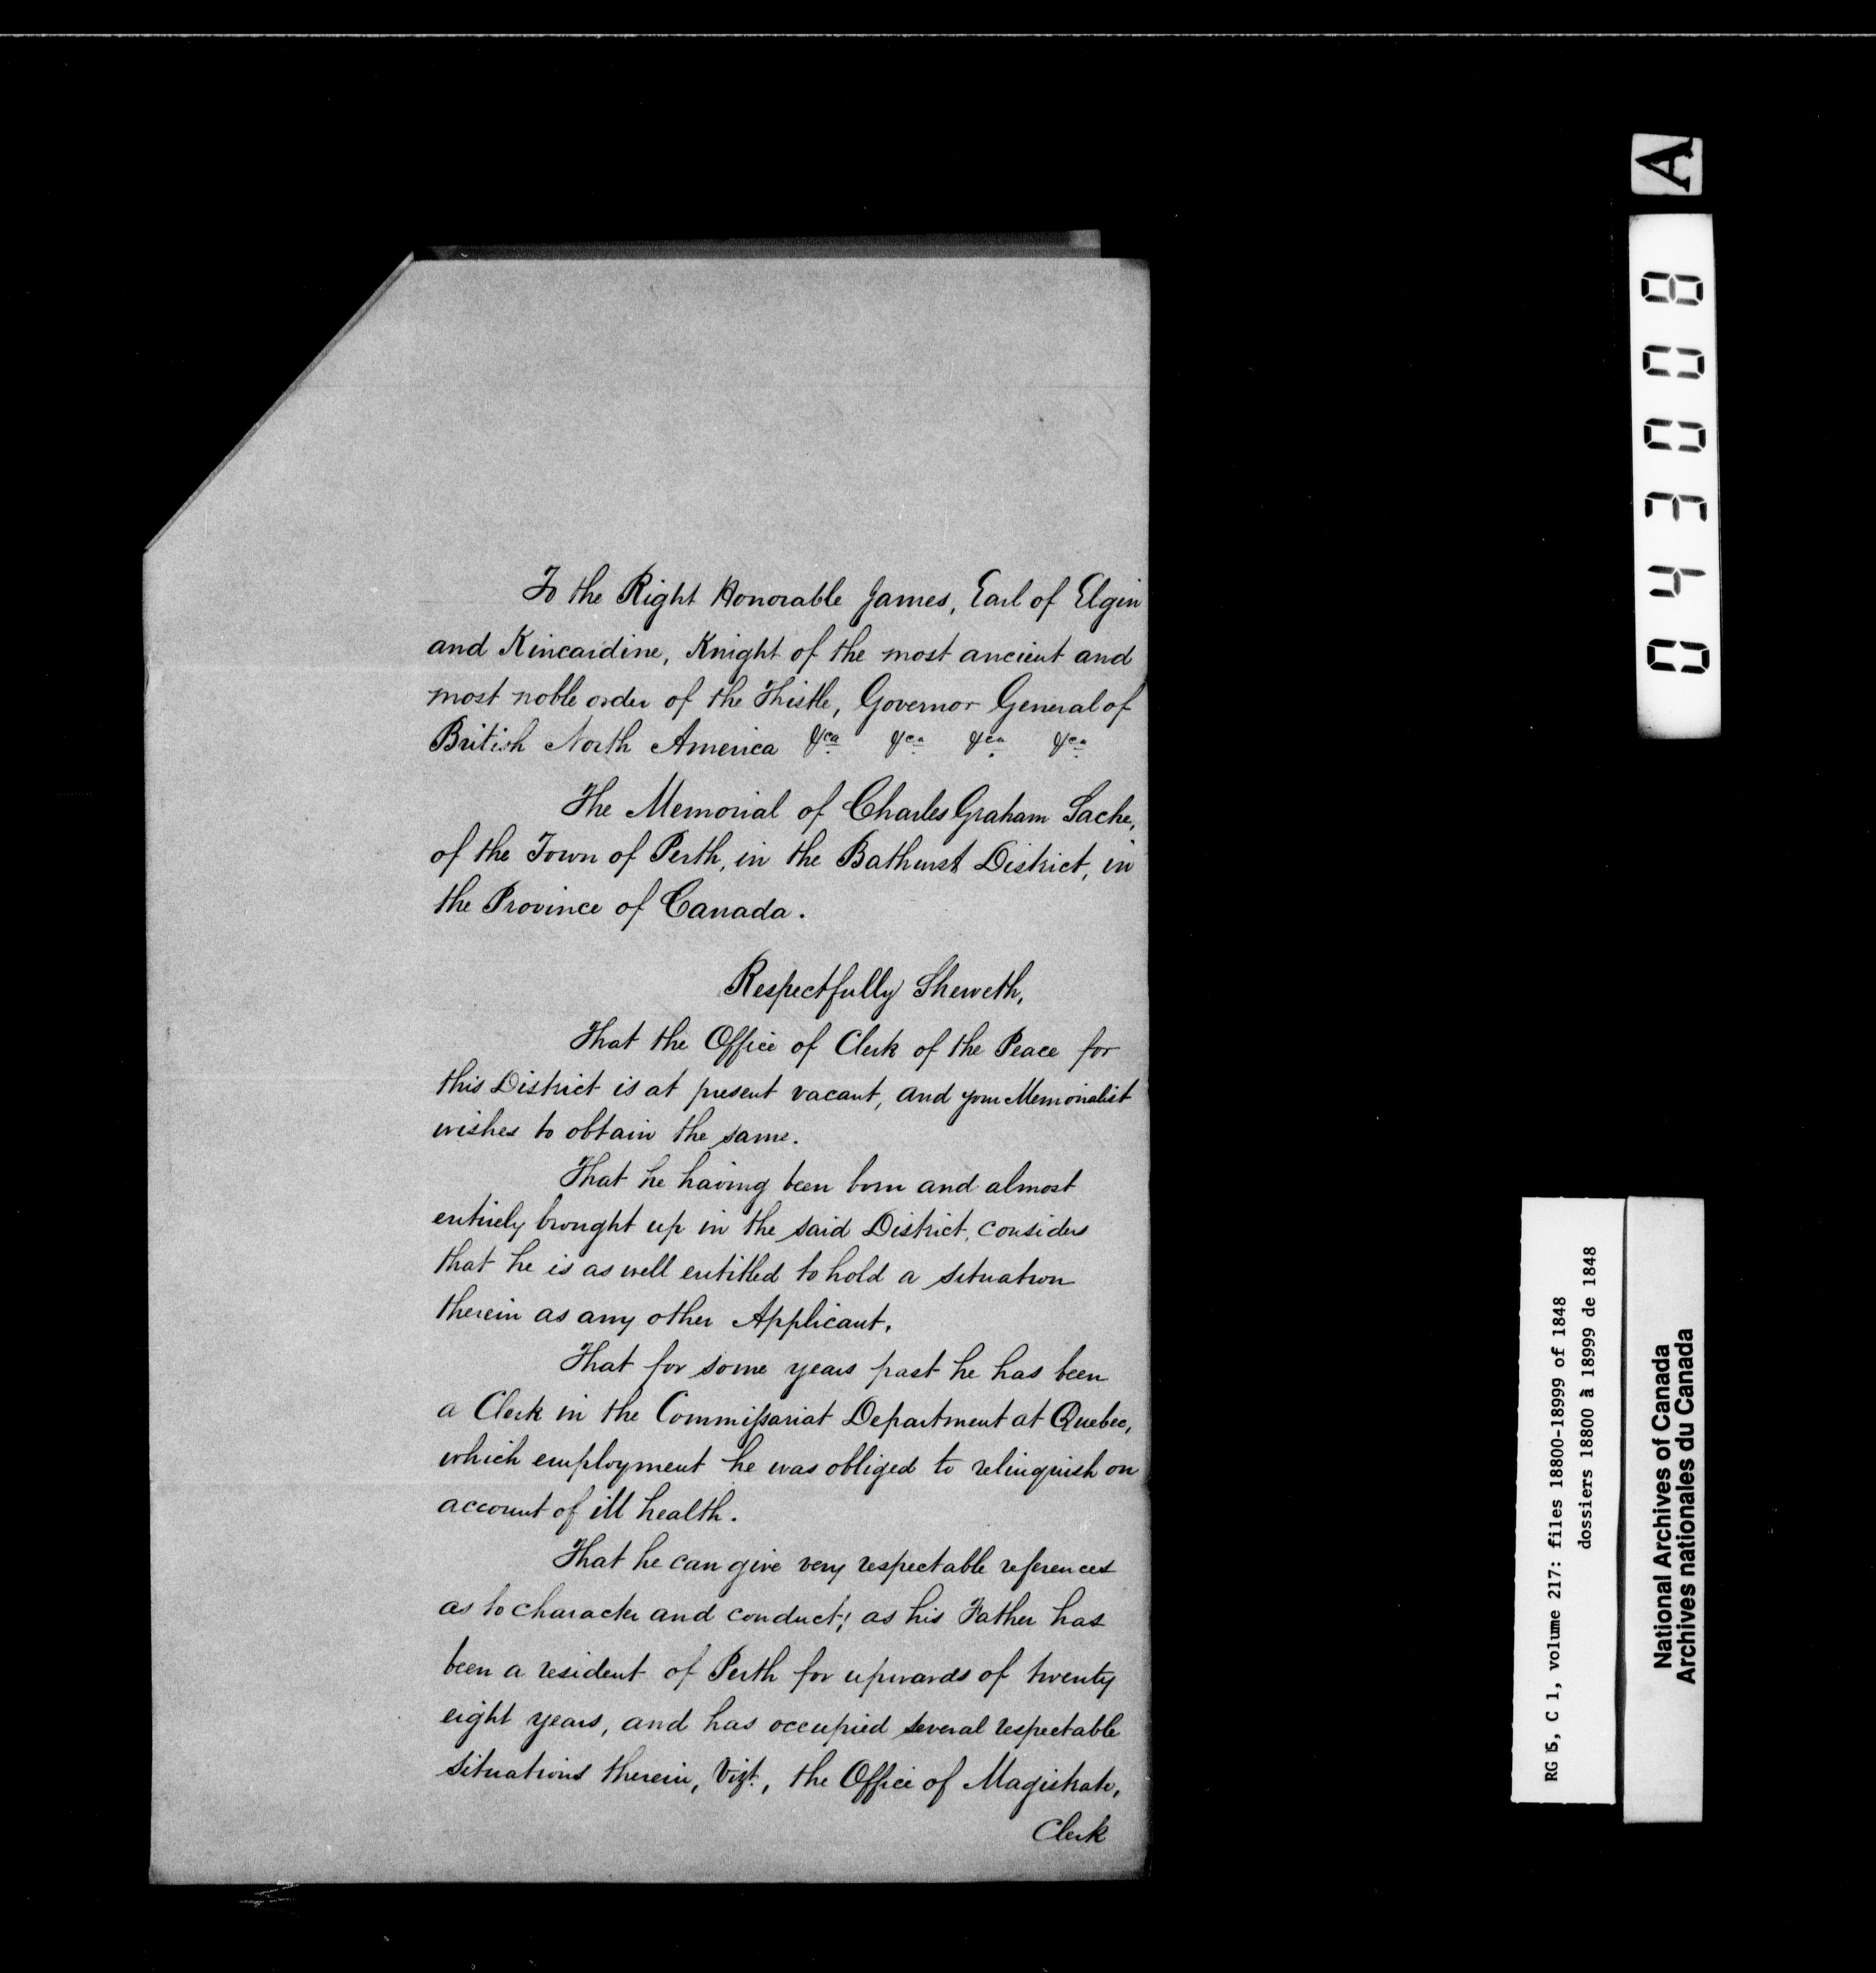 To the Right Honorable James, Earl of Elgin
and Kincardine, Knight of the most ancient and
most noble order of the Thistle, Governor General of
British North America &ca &ca &ca &ca
The Memorial of Charles Graham Sache,
of the Town of Perth, in the Bathurst District, in
the Province of Canada.
Respectfully Sheweth,
That the Office of Clerk of the Peace for
this District is at present vacant, and your Memorialist
wishes to obtain the same.
That he having been born and almost
entirely brought up in the said District, considers
that he is as well entitled to hold a situation
therein as any other Applicant.
That for some years past he has been
a Clerk in the Commissariat Department at Quebec,
which employment he was obliged to relinquish on
account of ill health.
That he can give very respectable references
as to character and conduct; as his Father has
been a resident of Perth for upwards of twenty
eight years, and has occupied several respectable
situations therein, Vizt., the Office of Magistrate,
Clerk
A
043008
RG 5, C 1, volume 217: files 18800-18999 of 1848
dossiers 18800 à 18999 de 1848
National Archives of Canada
Archives nationales du Canada